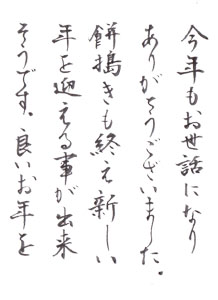 今年もお世話になり
ありがとうございました。
餅搗きも終え新しい
年を迎える事が出来
そうです。良いお年を